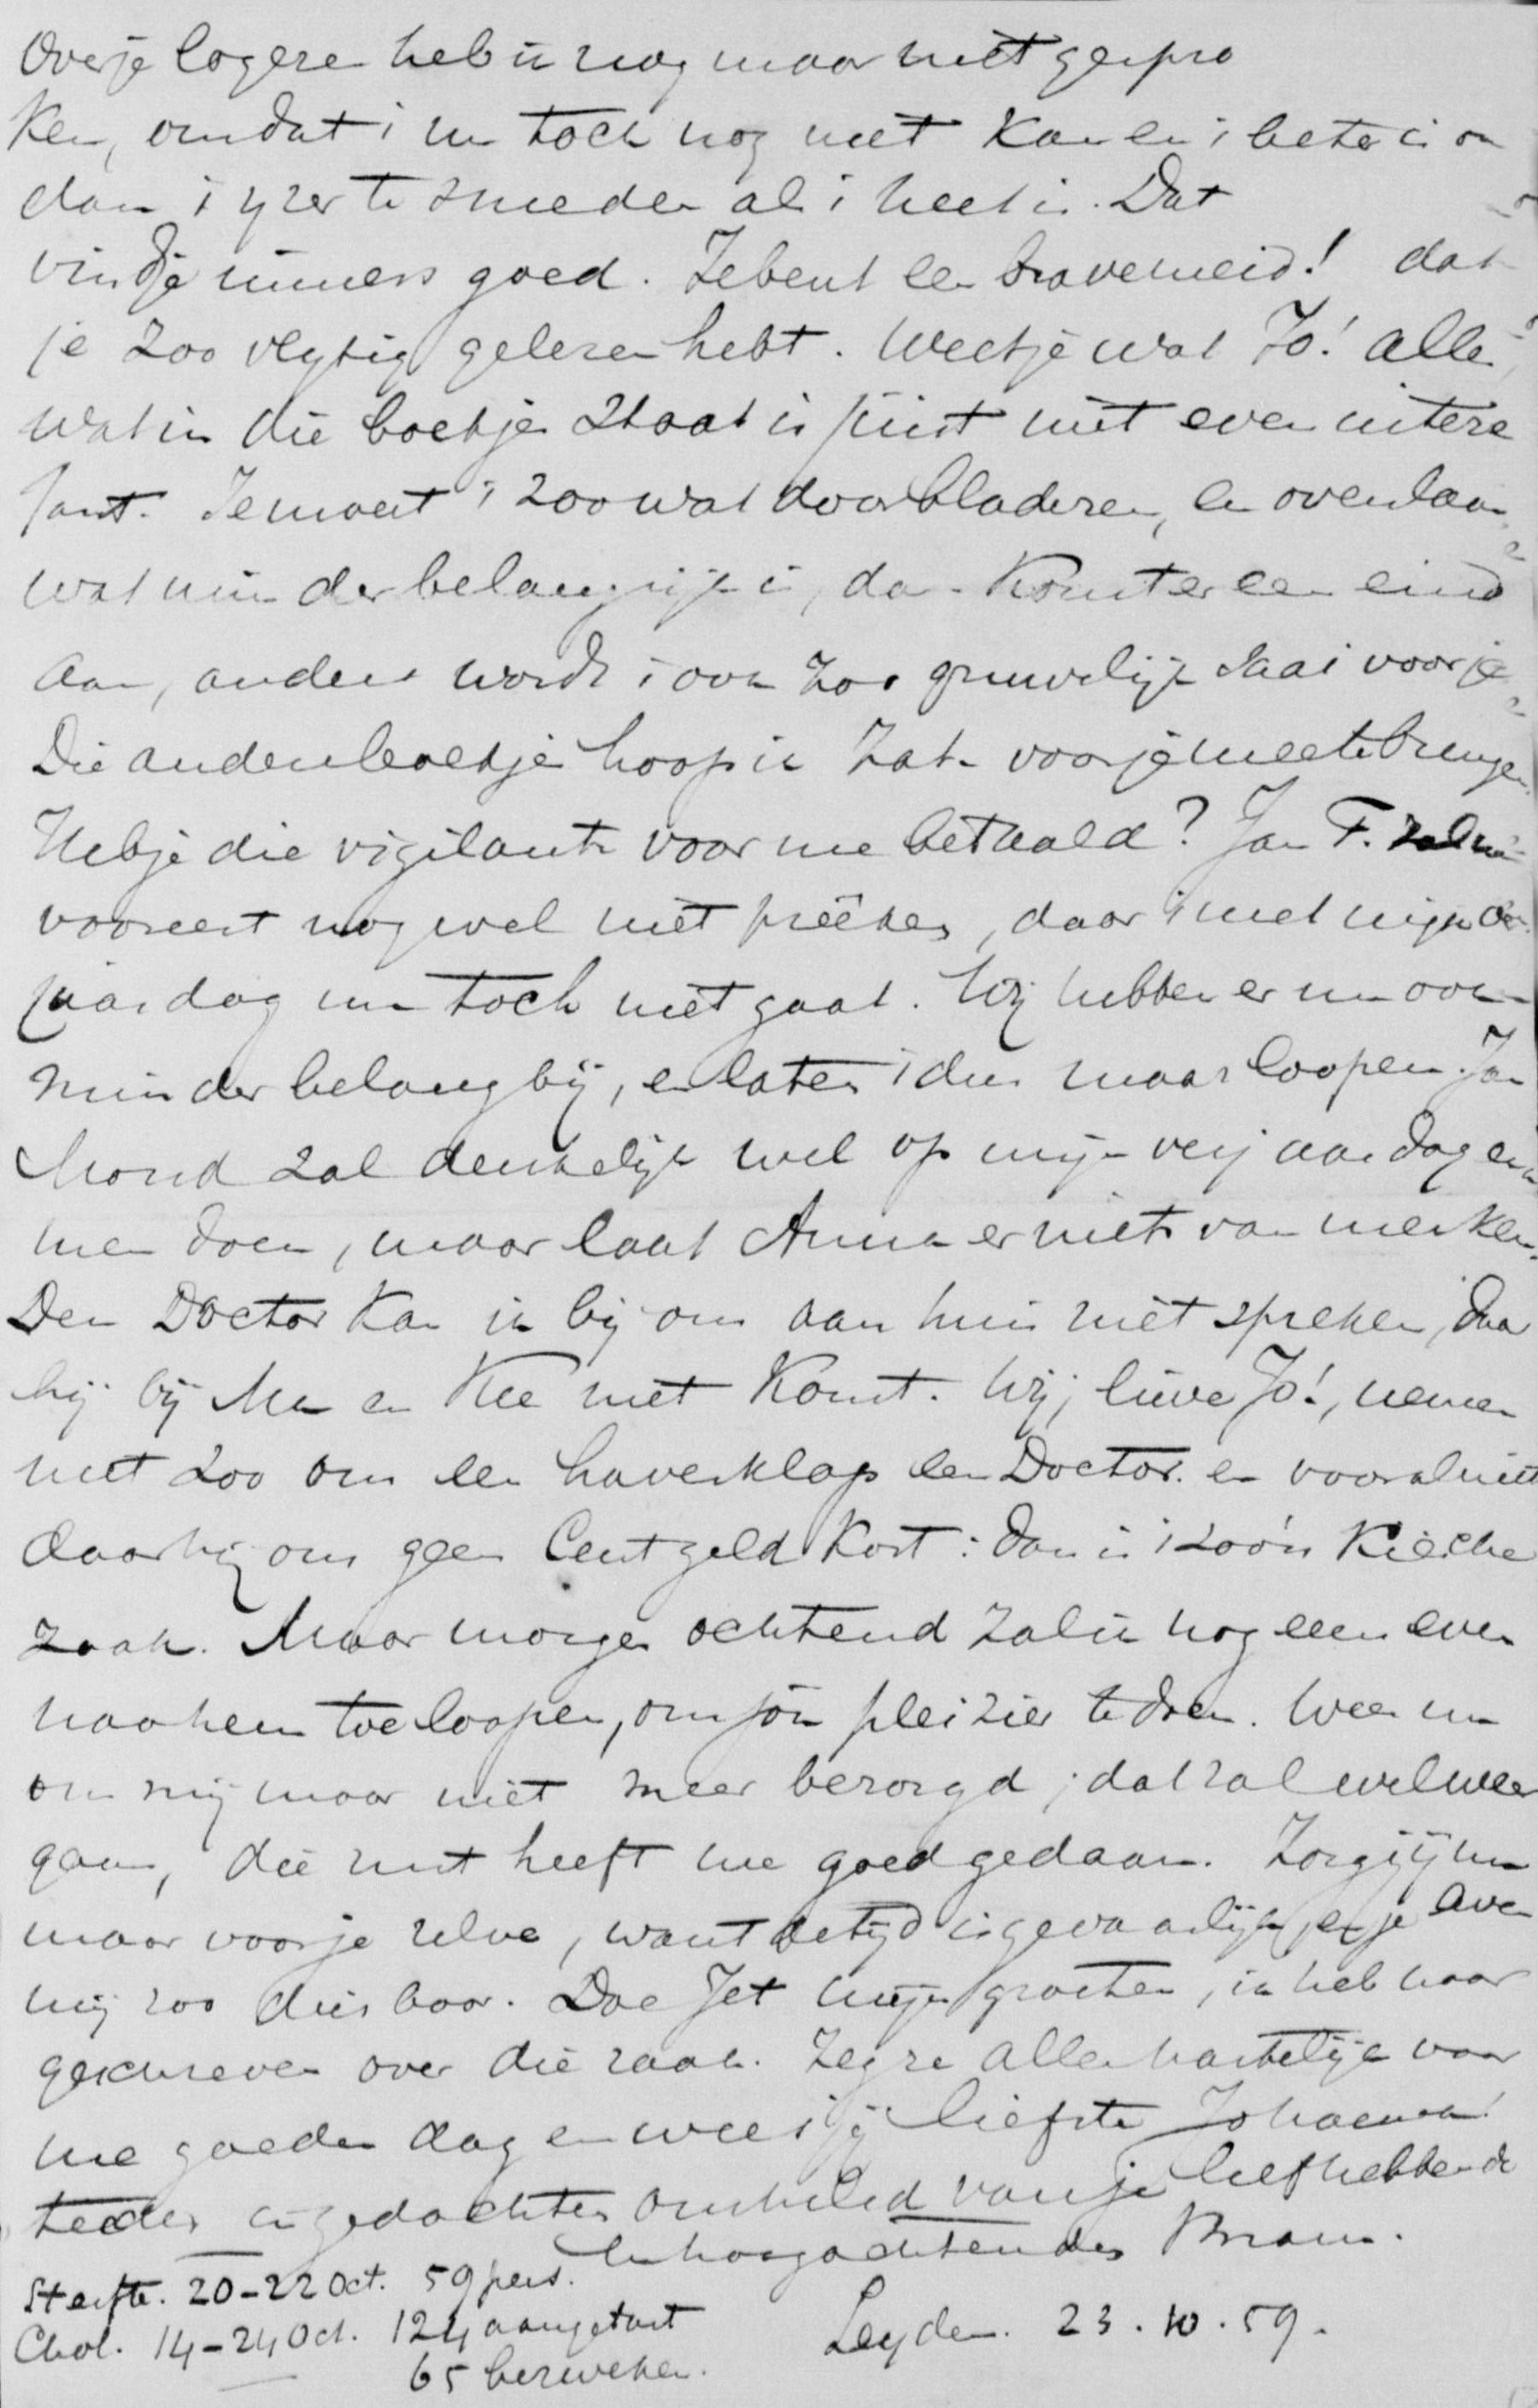 Over je logeren heb ik nog maar niet gespro
ken, omdat i nu toch nog niet kan en i beter is om
dan i yzer te smeden als i heet is. Dat
vindje immers goed. Je bent een brave meid! dat
je zoo vlytig gelezen hebt. Weetje wat Jo! alles
wat in die boekjes staat is juist niet even intere
sant. Je moet i zoo wat doorbladeren, en overslaan
wat minder belangrijk is, dan komt er een eind
aan, anders wordt i ook zoo gruwelijk saai voor je
Die andere boekjes hoop ik Zat. voor je mee te brengen.
Heb je die vigilante voor me betaald? Jan F. zal me
vooreerst nog wel niet preêken, daar i met mijn ver
jaardag nu toch niet gaat. Wij hebben er nu ook
minder belang bij, en laten i dus maar loopen. Jan
Mond zal denkelijk wel op mijn verjaardag exa
men doen, maar laat Anna er niets van merken.
Den Doctor kan ik bij ons aan huis niet spreken, daar
hij bij Ma en Kee niet komt. Wij, lieve Jo!, nemen
niet zoo om een haverklap een Doctor. en vooral niet
daar hij ons geen Cent geld kost: dan is i zoo'n kiesche
zaak. Maar morgen ochtend zal ik nog eens even
naar hem toe loopen, om jou pleizier te doen. Wees nu
om mij maar niet meer bezorgd; dat zal wel weer
gaan, die rust heeft me goed gedaan. Zorg jij nu
maar voor je zelve, want de tijd is gevaarlijk, en je ben
mij zoo dierbaar. Doe Jet mijn groeten, ik heb haar
geschreven over die zaak. Zeg ze allen hartelijk voor
me goeden dag en wees jij liefste Johanna!
teeder in gedachten omhelsd van je liefhebbende
en hoogachtenden Bram.
Sterfte. 20-22 Oct. 59 pers.
Chol. 14-24 Oct. 124 aangetast
65 bezweken.
Leyden. 23.10.59.